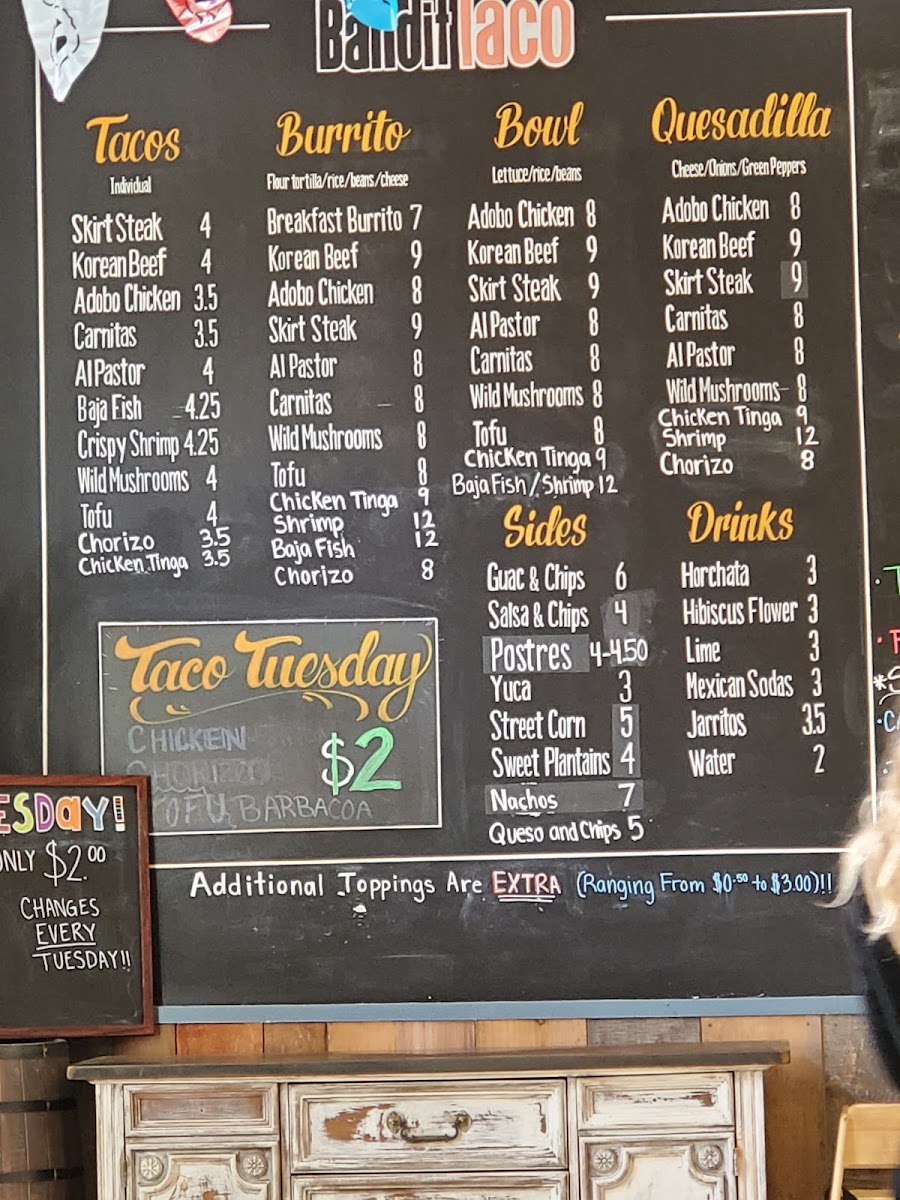 Bandit Taco
Tacos
Individual
Skirt Steak 4
Korean Beef 4
Adobo Chicken 3.5
Carnitas 3.5
Al Pastor 4
Baja Fish 4.25
Crispy Shrimp 4.25
Wild Mushrooms 4
Tofu 4
Chorizo 3.5
Chicken Tinga 3.5
Burrito
Flour tortilla/rice/beans/cheese
Breakfast Burrito 7
Korean Beef 9
Adobo Chicken 8
Skirt Steak 9
Al Pastor 8
Carnitas 8
Wild Mushrooms 8
Tofu 8
Chicken Tinga 9
Shrimp 12
Baja Fish 12
Chorizo 8
Bowl
Lettuce/rice/beans
Adobo Chicken 8
Korean Beef 9
Skirt Steak 9
Al Pastor 8
Carnitas 8
Wild Mushrooms 8
Tofu 8
Chicken Tinga 9
Baja Fish / Shrimp 12
Quesadilla
Cheese/Onions/Green Peppers
Adobo Chicken 8
Korean Beef 9
Skirt Steak 9
Carnitas 8
Al Pastor 8
Wild Mushrooms 8
Chicken Tinga 9
Shrimp 12
Chorizo 8
Sides
Guac & Chips 6
Salsa & Chips 4
Postres 4-4.50
Yuca 3
Street Corn 5
Sweet Plantains 4
Nachos 7
Queso and Chips 5
Drinks
Horchata 3
Hibiscus Flower 3
Lime 3
Mexican Sodas 3
Jarritos 3.5
Water 2
Taco Tuesday
CHICKEN
CHORIZO
TOFU, BARBACOA
$2
ESDAY!
ONLY $2.00
CHANGES
EVERY
TUESDAY!!
Additional Toppings Are EXTRA (Ranging From $0.50 to $3.00)!!